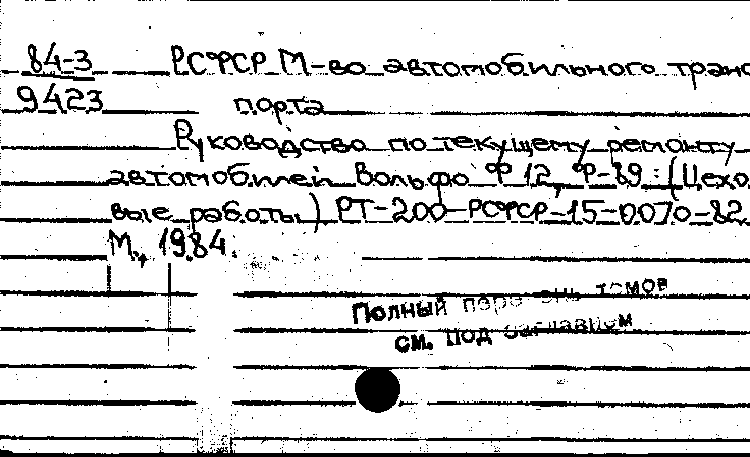 84-3 РСФСР М-во автомобильного транс
9423 порта
Руководство по текущему ремонту
автомобилей Вольво Ф 12, Ф-89: (Цехо
вые работы) РТ-200-РСФСР-15-0070-82.
М., 1984.
Полный перечень томов
см. под заглавием